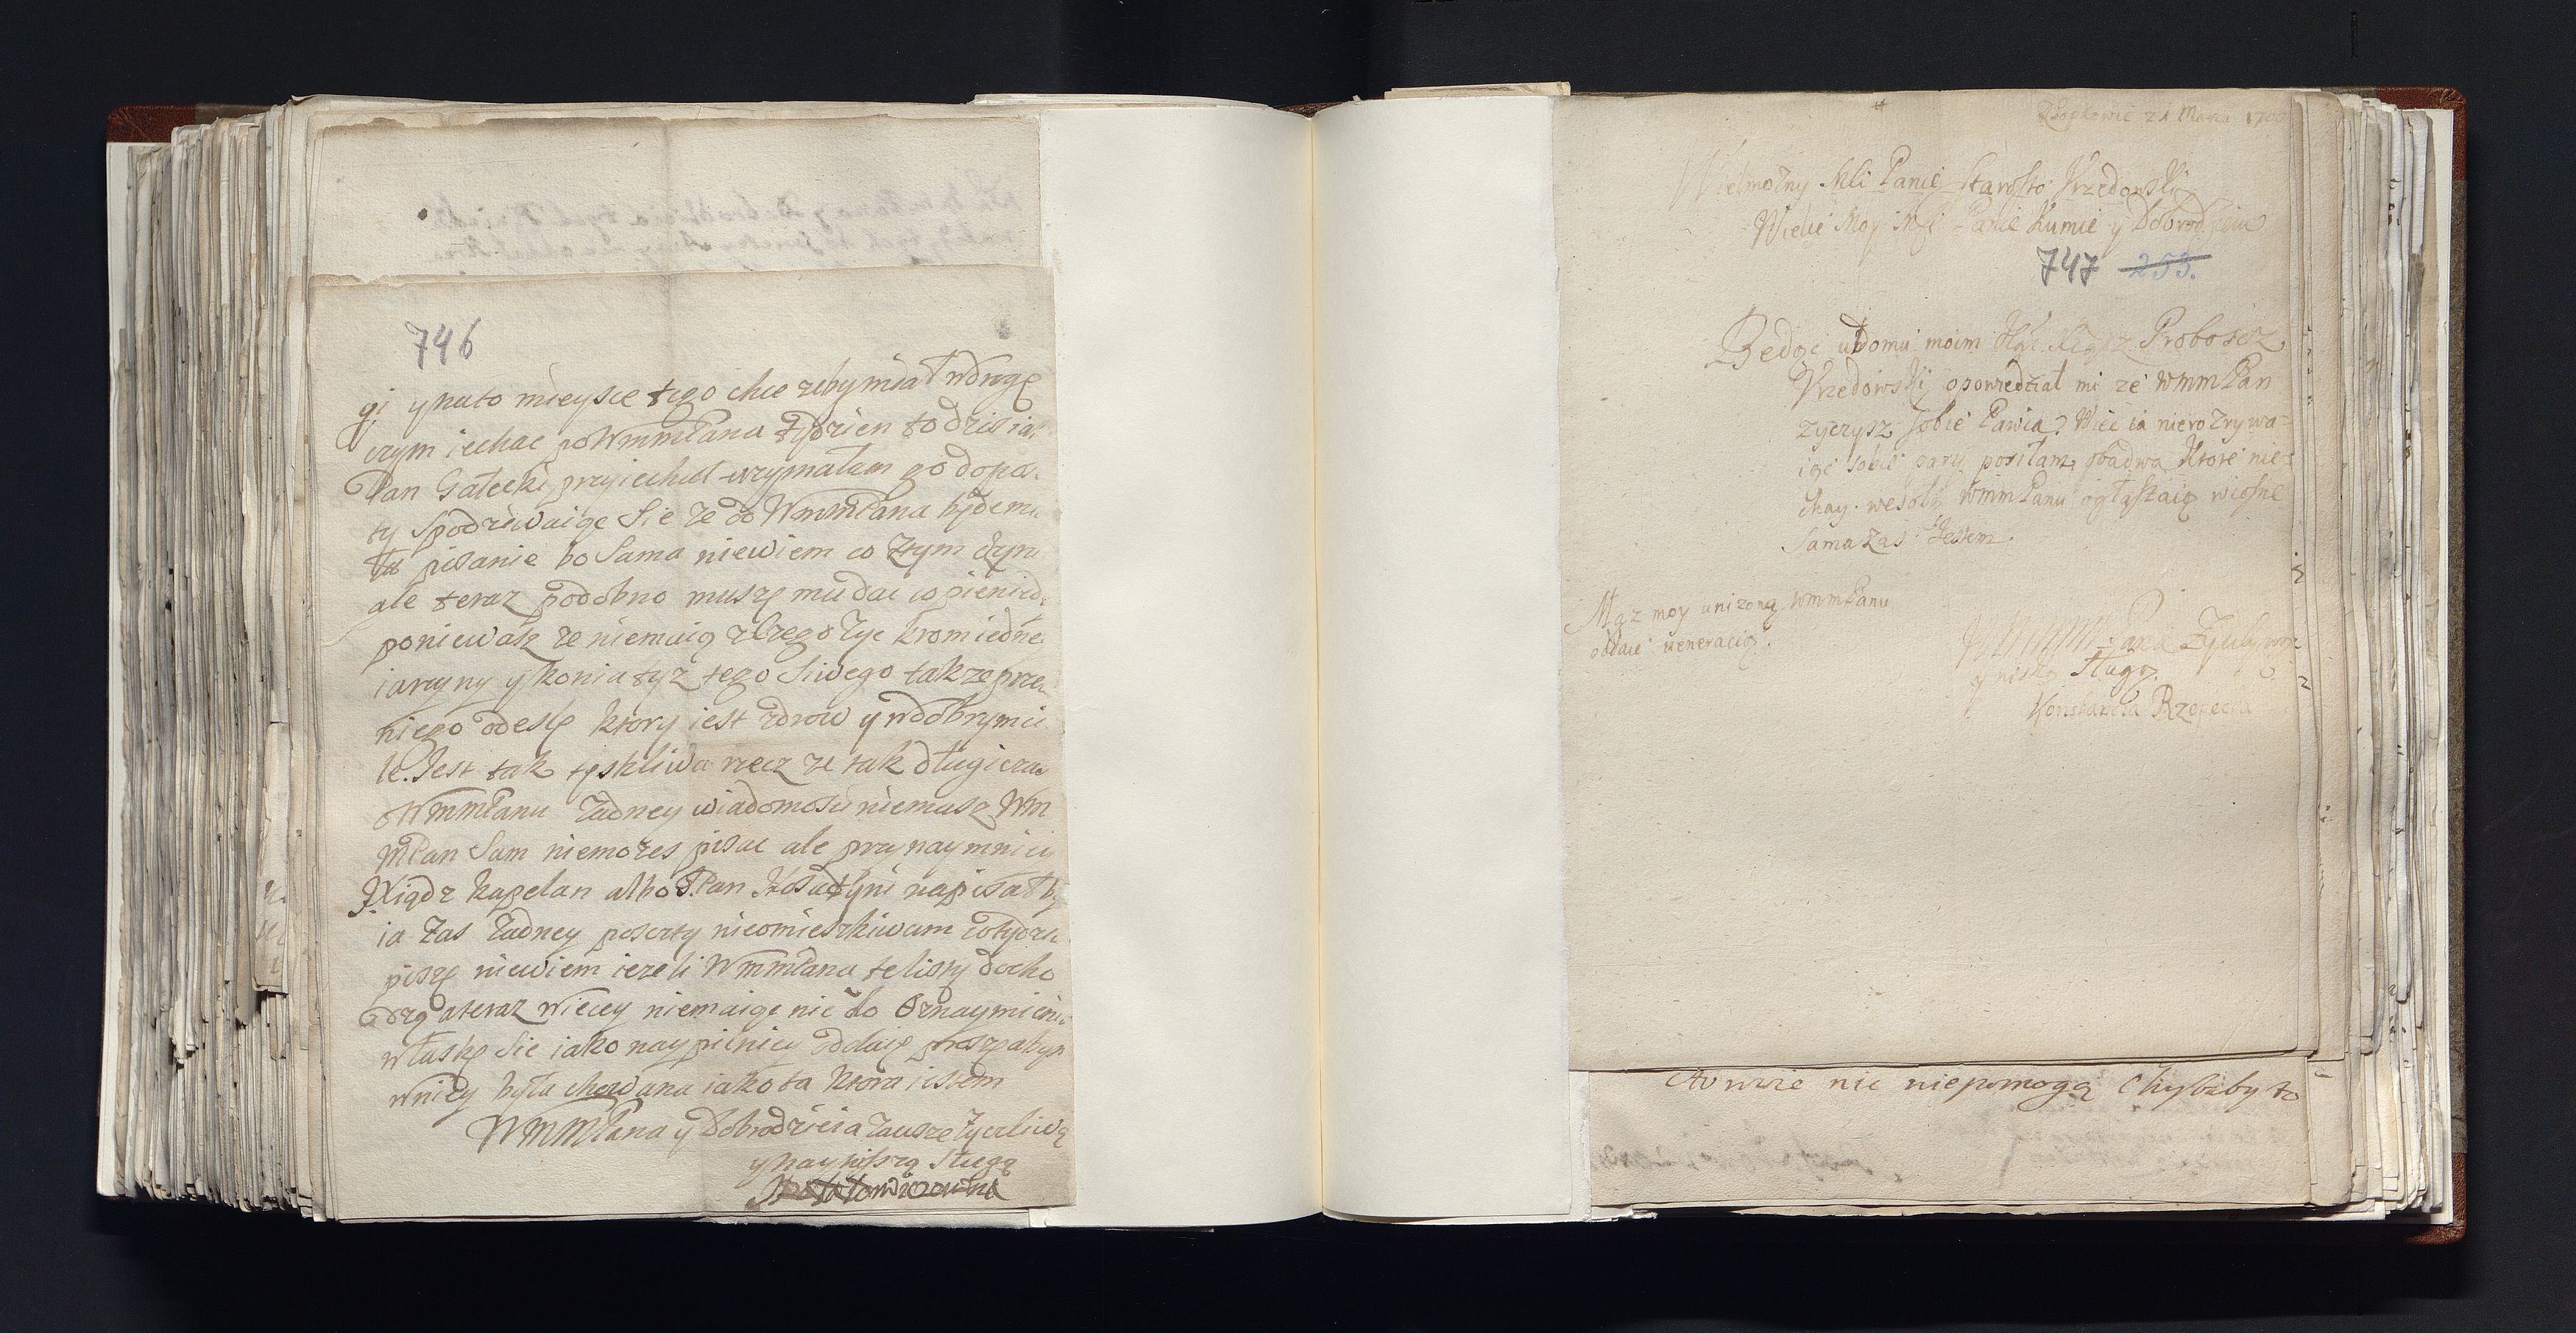 746
gi y na to mieysce tego chce zeby miał wdrugę
czym iechac po WmmPana tydzien to dzis ia
Pan Gałecki przyiechał wzymałam go dopo
ty Spodziewaiąc Sie ze od WmmPana będe mia
ła pisanie bo Sama niewiem co Ztym czyn
ale teraz podobno muszę mu dac co pieniedz
poniewasz ze niemaią zczego Zyc krom iedne
iarzyny y konia tyz tego Siwego takze prze
niego odeslę ktory iest zdrow y wdobrym cie
le. Jest tak tęskliwa rzecz ze tak długi czas
o WmmPanu Zadney wiadomosci niemasz Wm
mPan Sam niemozes pisac ale przynaymniey
JXiądz kapelan albo P. Pan napisał by
ia Zas Zadney poszty nieomieszkiwam co tydzie
piszę niewiem iezeli WmmPana te listy docho
dzą a teraz wiecey niemaiąc nic do Oznaymieni
właskę Sie iako naypilniey oddaię proszę abym
wniey była chowana iako ta ktora iestem
WMMPana y Dobrodzieia Zawsze Zyczliwą
y naynizszą Sługą
21 Marca
Wielmozny Mći Panie Starosto Vrzedowski
Wielce Moy Mći Panie Kumie y Dobrodzieiu
747 253.
Bedąc wdomu moim Xiądz Proboscz
Vrzedowski, opowiedział mi ze WmmPan
zyczysz sobie Pawia? Wiec ia nierozrywa-
iąc sobie pary posiłam obadwa Ktore nie-
chay. wesołą WmmPanu ogłaszaią wiosne
Sama zas Iestem.
Mąz moy unizoną WmmPanu
oddaie veneracią.
WMM Pana Zyczliwą
y niską Sługą
Konstancia Rzepecka
nic niepomogą Chybaby to